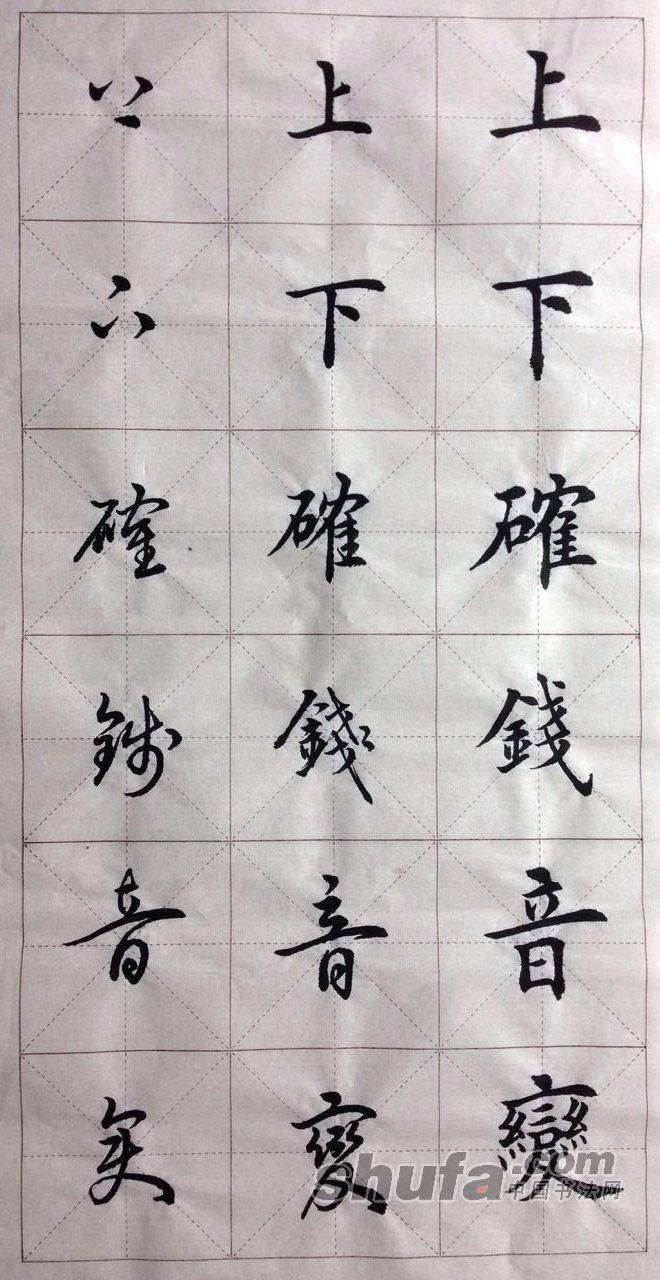 上下確錢音變
上下確錢音變
上下確錢音變
shufa.com
中国书法网